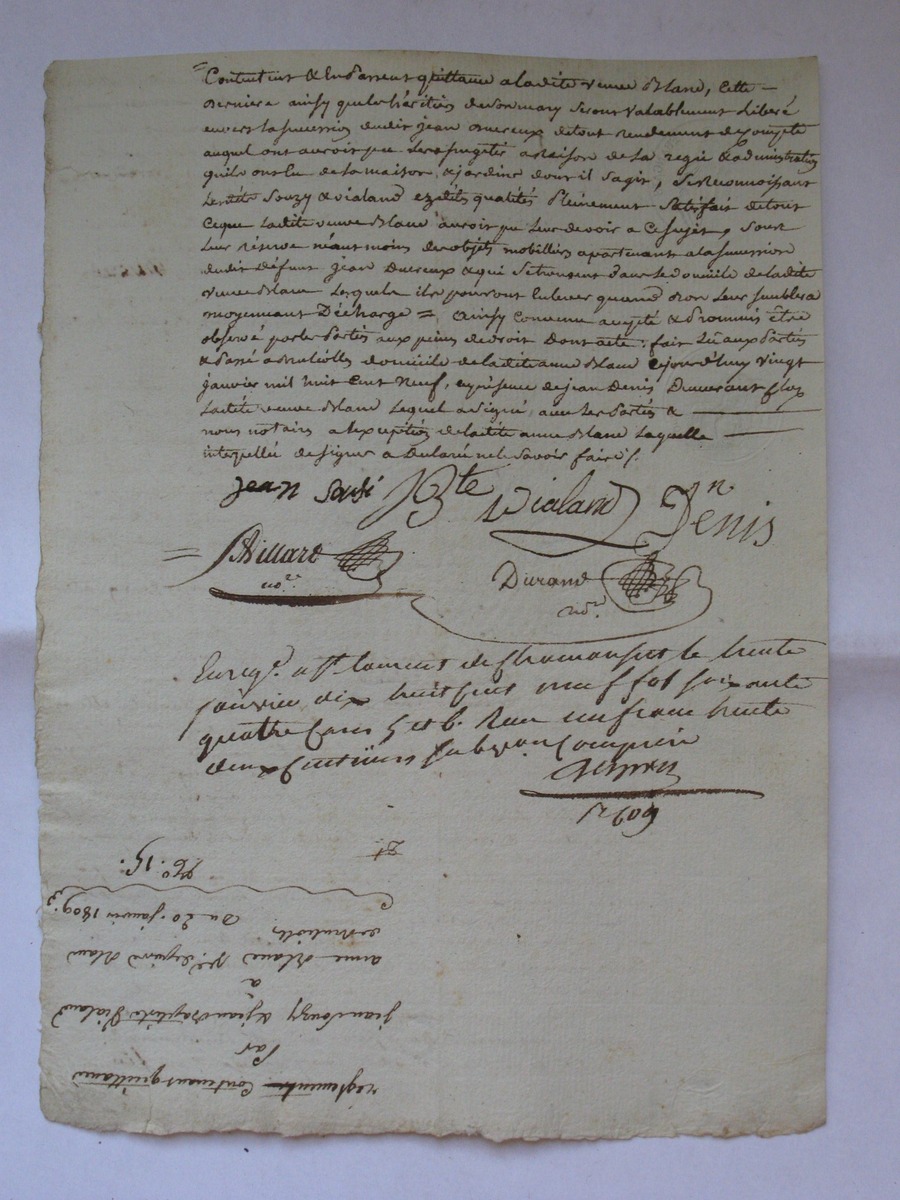 Contentent & En Passent quittance a ladite veuve Blanc, Cette
derniere ainsy que les héritiers de son mary seront valablement Liberé
envers la succession dudit jean Ducreux de tout rendement de Compte
auquel ont auroit pu les assugetir a raison de la regie & administration
qu'ils ont Eu de la maison & jardins dont il sagit, se Reconnoissant
Lesdits Souzy & vialand ezdites qualités Pleinement Satisfait de tout
Ceque Ladite veuve Blanc auroit pu Leur devoir a Ce sujet, Sous
Leur réserve néant moins des objets mobilliers apartenant a la succession
dudit défunt jean Ducreux & qui se trouvent dans le domicile de ladite
veuve Blanc Lesquels ils pouront Enlever quand Bon Leur semblera
moyennant Décharge = ainsy Convenu accepté & Promis être
observé par les Parties aux peines de droit Dont acte: fait Lû aux Parties
& Passé a domicile de ladite anne Blanc Cejourd'huy vingt
janvier mil huit Cent Neuf, en présence de jean Denis
Ladite veuve Blanc Lequel a Signé, avec les Parties &
nous notaires a L'exception de ladite anne Blanc Laquelle
interpellée de signer a Declaré ne le Savoir faire /.
jean Sousi JBte Vialand Jn Denis
Billard Durand
nore. nore.
Enreg. a St laurent de Chamousset le trente
janvier dix huit cent neuf fol soixante
quatre Cases 5 et 6. Recu un franc trente
deux Centimes Subvon Comprise
1809
No. 15.
Du 20. janvier 1809.
anne Blanc Ve. Blanc
a
jean Souzy & jean Baptiste Vialand
Par
réglement Contenant quittance